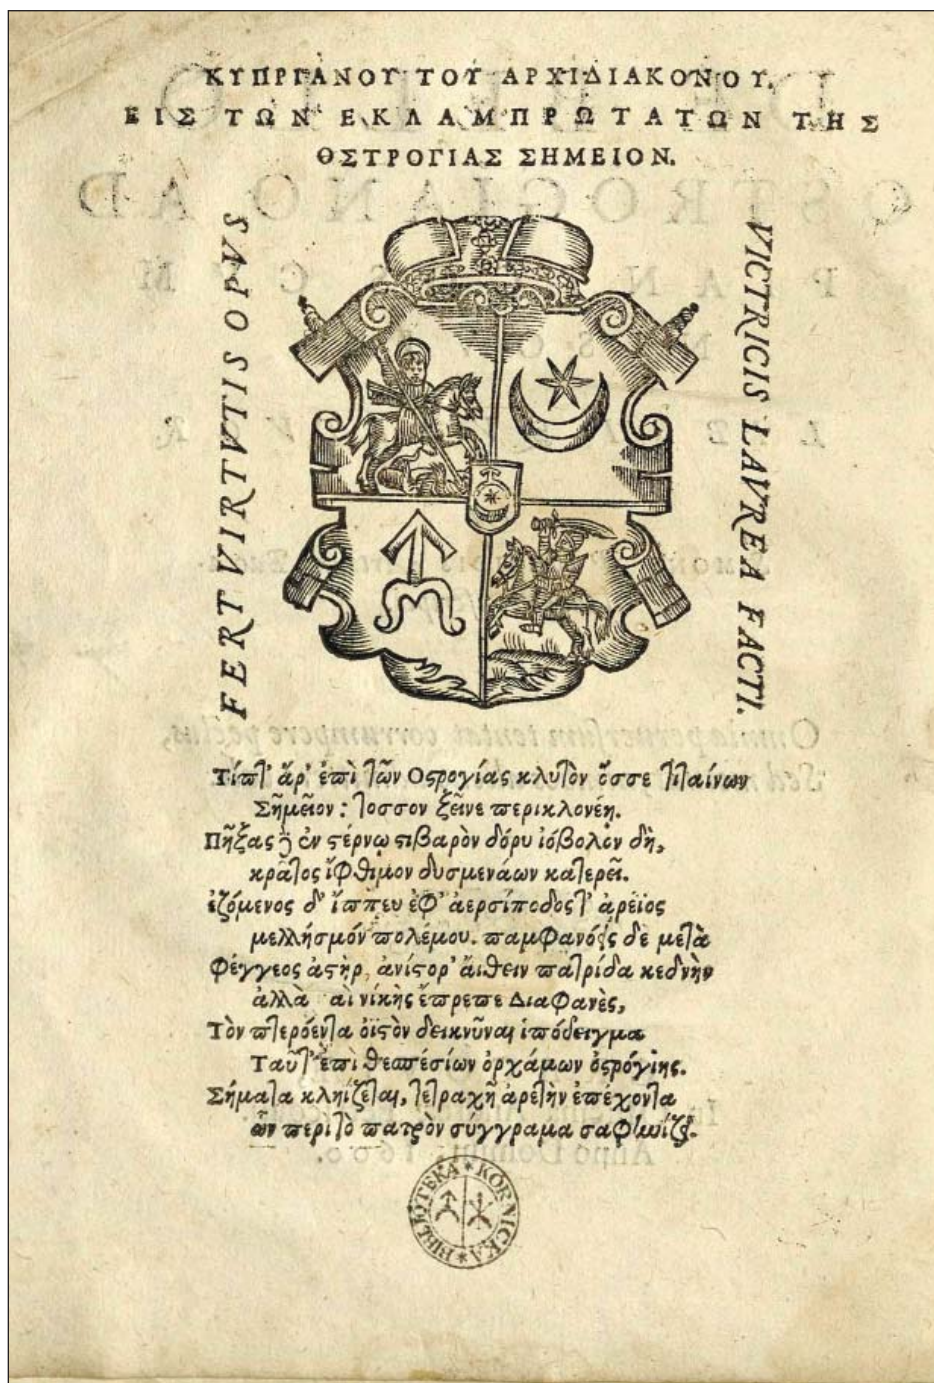 ΚΥΠΡΓΑΝΟΥ ΤΟΥ ΑΡΧΙΔΙΑΚΟΝΟΥ.
ΕΙΣ ΤΩΝ ΕΚΛΑΜΠΡΩΤΑΤΩΝ ΤΗΣ
ΘΣΤΡΟΓΙΑΣ ΣΗΜΕΙΟΝ.
FERT VIRTVTIS OPVS
VICTRICIS LAVREA FACTI.
Τίπτ' ἄρ' ἐπὶ τῶν Οςρογίας κλυτὸν ὄσσε τιταίνων
Σῆμεῖον : τοσσον ξεῖνε περικλονέῃ.
Πῆξας ἐν ςέρνῳ ςιβαρὸν δόρυ ἰόβολον δὴ,
κράτος ἴφθιμον δυσμενάων κατερεῖ.
ἑζόμενος δ' ἵππευ ἐφ' ἀερσίποδος τ' ἀρεῖος
μελλήσμόν πολέμου. δὲ μετὰ
Φέγγεος ἀςὴρ, ἀνίςορ' ἄιθειν πατρίδα κεδνὴν
ἀλλὰ αἱ νίκὴς ἔπρεπε Διαφανὲς,
Τὸν πτερόεντα οἰςὸν δεικνῦναι ἱπόδειγμα
Ταῦτ' ἐπὶ θεσπέσίων ὀρχάμων ὀςρόγιης.
Σήματα κληίζεται, τετραχῆ ἀρετὴν ἐπέχοντα
ὧν περὶ τὸ πατρὸν σύγγραμα
BIBLIOTEKA * KÓRNICKA *